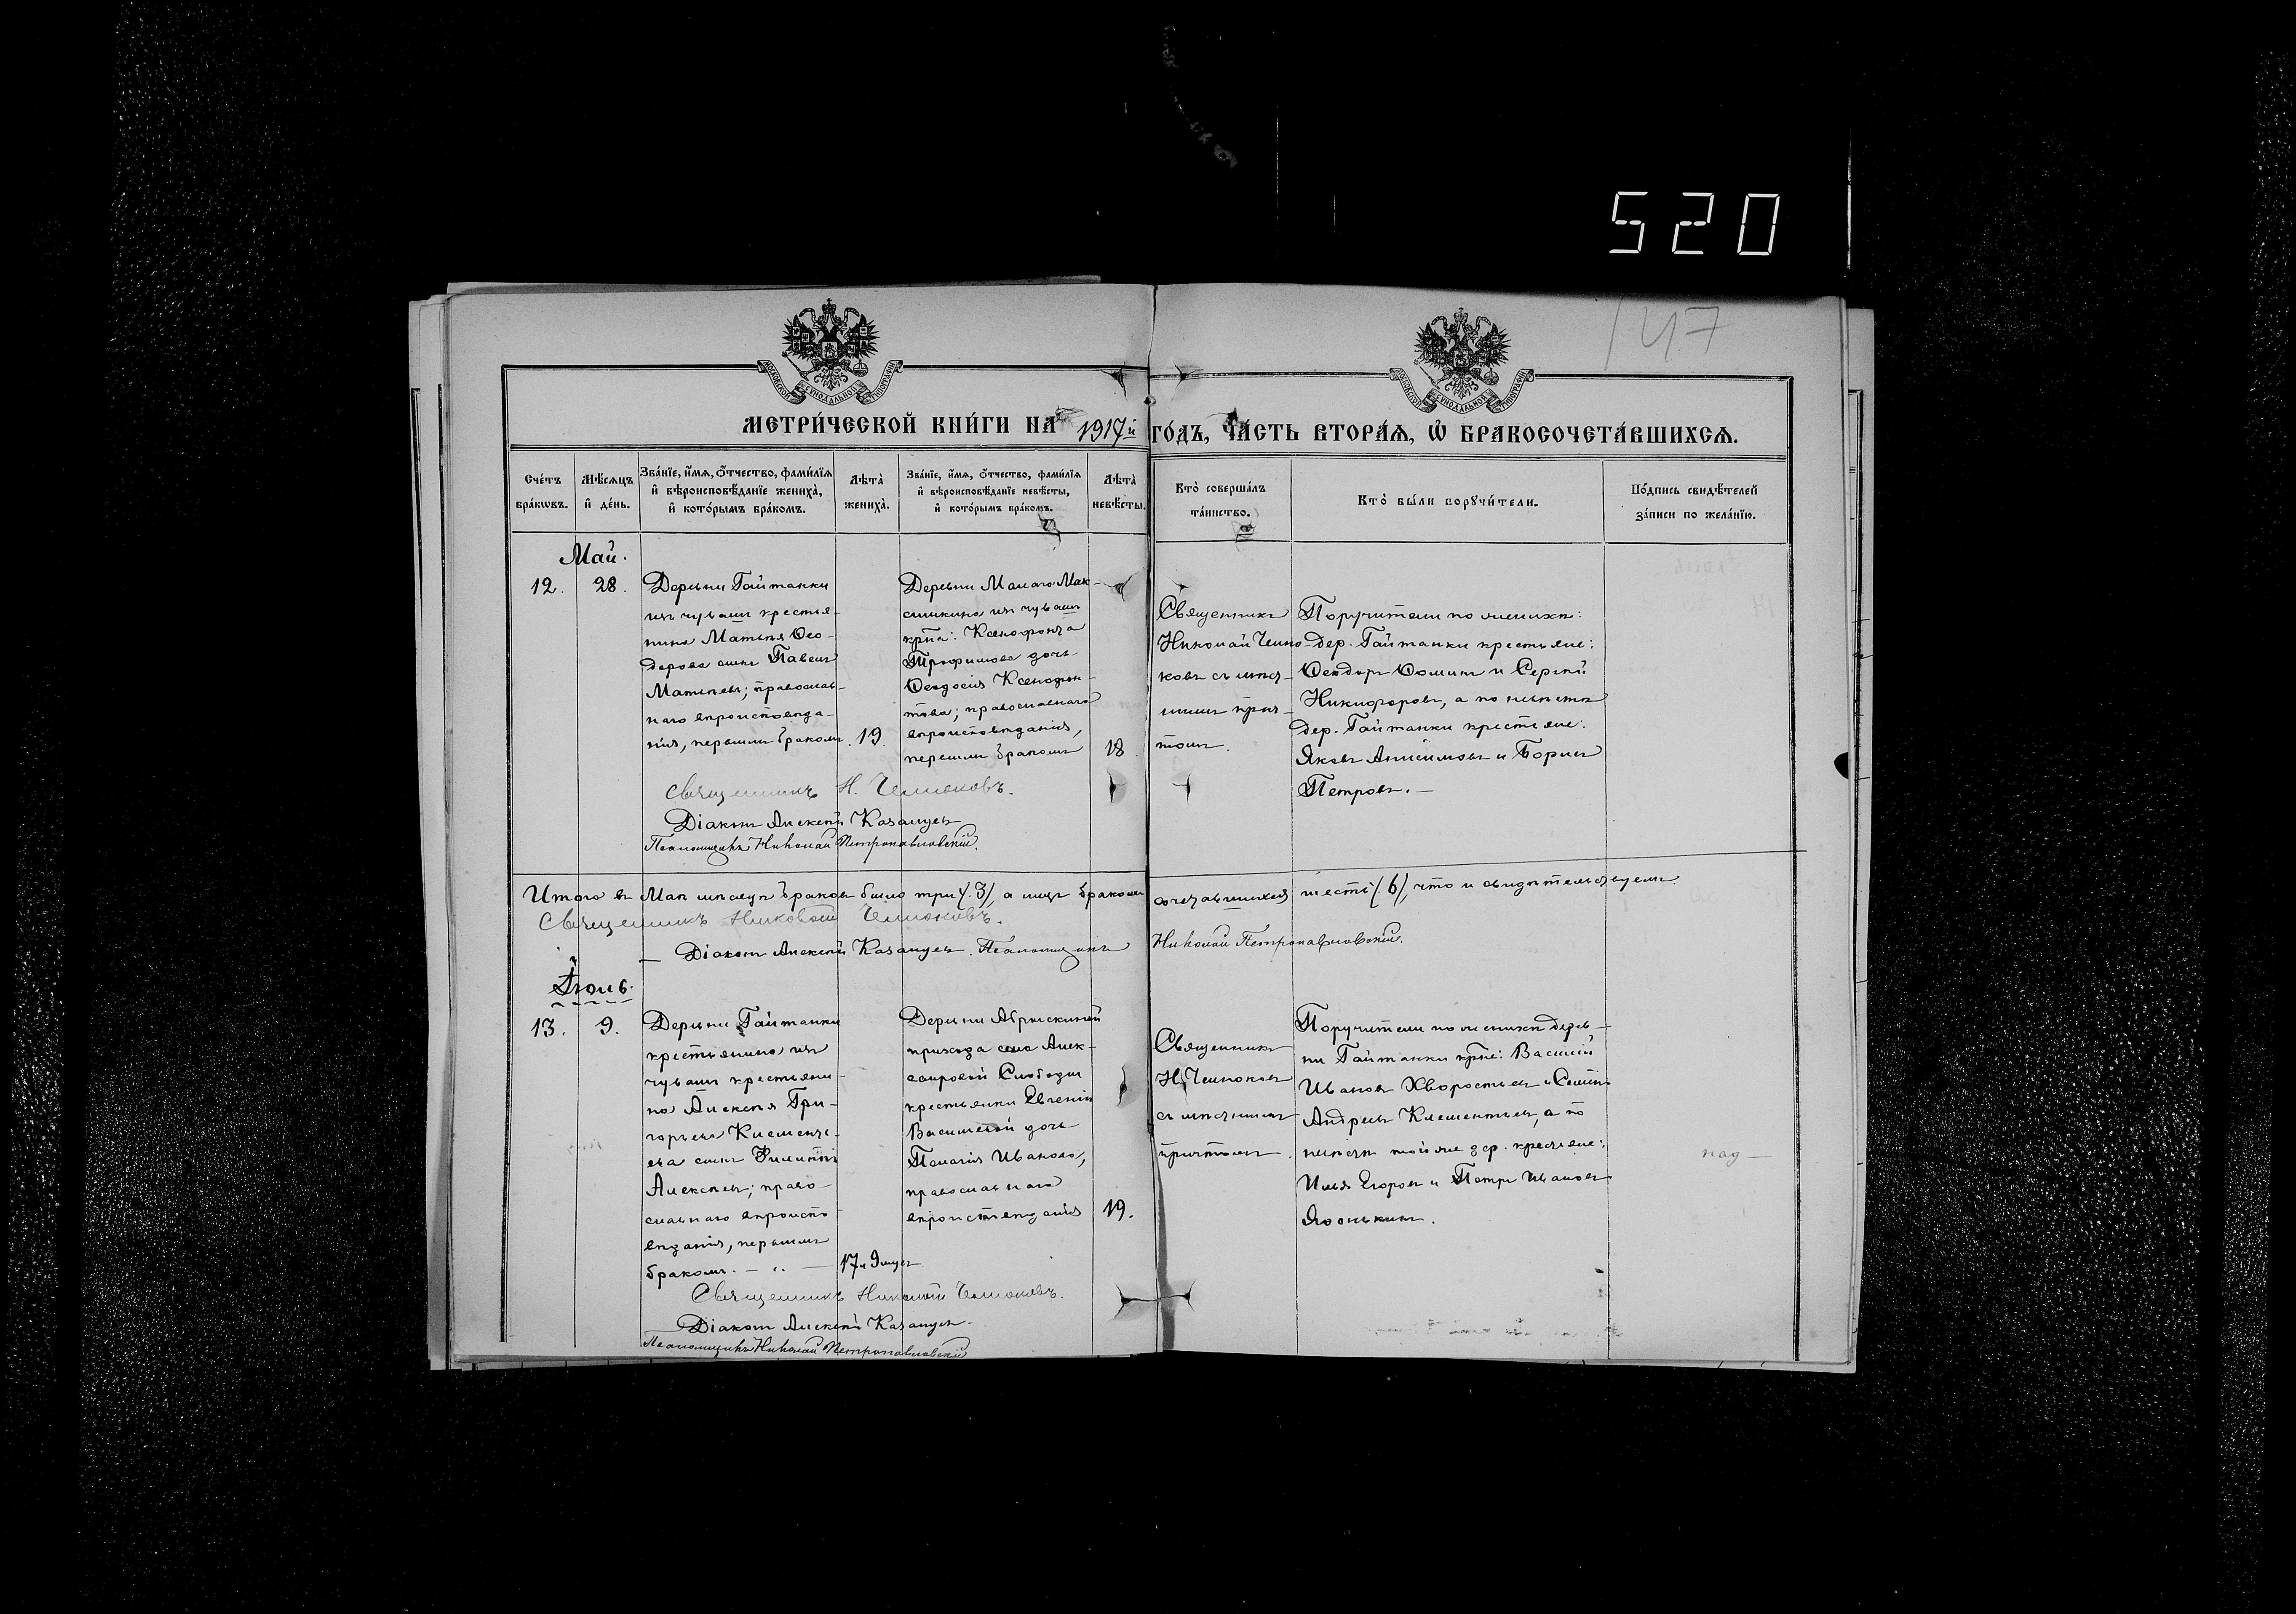 520
147
МЕТРИ́ЧЕСКОЙ КНИ́ГИ НА 1917й ГО́ДЪ, ЧА́СТЬ ВТОРА́Я, Ѡ БРАКОСОЧЕТА́ВШИХСЯ.
Сче́тъ бра́кѡвъ.
Мѣ́сяцъ и҆ де́нь.
Зва́нїе, и҆́мя, ѻ҆́тчество, фами́лїя и҆ вѣроисповѣ́данїе жениха̀, и҆ кото́рымъ бра́комъ.
Лѣ́та жениха̀.
Зва́нїе, и҆́мя, ѻ҆́тчество, фами́лїя и҆ вѣроисповѣ́данїе невѣ́сты, и҆ кото́рымъ бра́комъ.
Лѣ́та невѣ́сты.
Кто̀ соверша́лъ та́инство.
Кто̀ бы́ли порꙋчи́тели.
По́дпись свидѣ́телей за́писи по жела́нїю.
Май.
12.
28.
Деревни Гайтанки
изъ чувашъ крестья-
нина Матвѣя Ѳео-
дорова сынъ Павелъ
Матвѣевъ; православ-
наго вѣроисповѣда-
нія, первымъ бракомъ.
19.
Деревни Малаго Мак-
сишкина изъ чувашъ
крна: Ксенофонта
Трофимова дочь
Ѳеодосія Ксенофон-
това; православнаго
вѣроисповѣданія,
первымъ бракомъ
18
Священникъ
Николай Челно-
ковъ съ мѣст-
нымъ прич-
томъ.
Поручители по женихѣ:
дер. Гайтанки крестьяне:
Ѳеодоръ Ѳоминъ и Сергѣй
Никифоровъ, а по невѣстѣ
дер. Гайтанки крестьяне:
Яковъ Анисимовъ и Борисъ
Петровъ.—
Священникъ Н. Челноковъ.
Діаконъ Алексѣй Казанцевъ
Псаломщикъ Николай Петропавловскій.
Итого въ Маѣ мѣсяцѣ браковъ было три (3), а лицъ бракомъ сочетавшихся шесть (6), что и свидѣтельствуемъ.
Священникъ Николай Челноковъ.
Діаконъ Алексѣй Казанцевъ. Псаломщикъ Николай Петропавловскій.
Іюль.
13.
9.
Деревни Гайтанки
крестьянина изъ
чувашъ крестьяни-
на Алексѣя Гри-
горьева Клементь-
ева сынъ Филиппъ
Алексѣевъ; право-
славнаго вѣроиспо-
вѣданія, первымъ
бракомъ. — „ —
17 и 9 мѣсц
Деревни Абрыскиной
прихода села Алек-
сандровой Слободы
крестьянки Евгеніи
Васильевой дочь
Пелагія Иванова,
православнаго
вѣроисповѣданія
19.
Священникъ
Н. Челноковъ
съ мѣстнымъ
причтомъ.
Поручители по женихѣ дерев-
ни Гайтанки крне: Василій
Ивановъ Хворостьевъ и Семенъ
Андреевъ Клементьевъ, а по
невѣстѣ той же дер. крестьяне:
Илья Егоровъ и Петръ Ивановъ
Священникъ Николай Челноковъ.
Діаконъ Алексѣй Казанцевъ.
Псаломщикъ Николай Петропавловскій